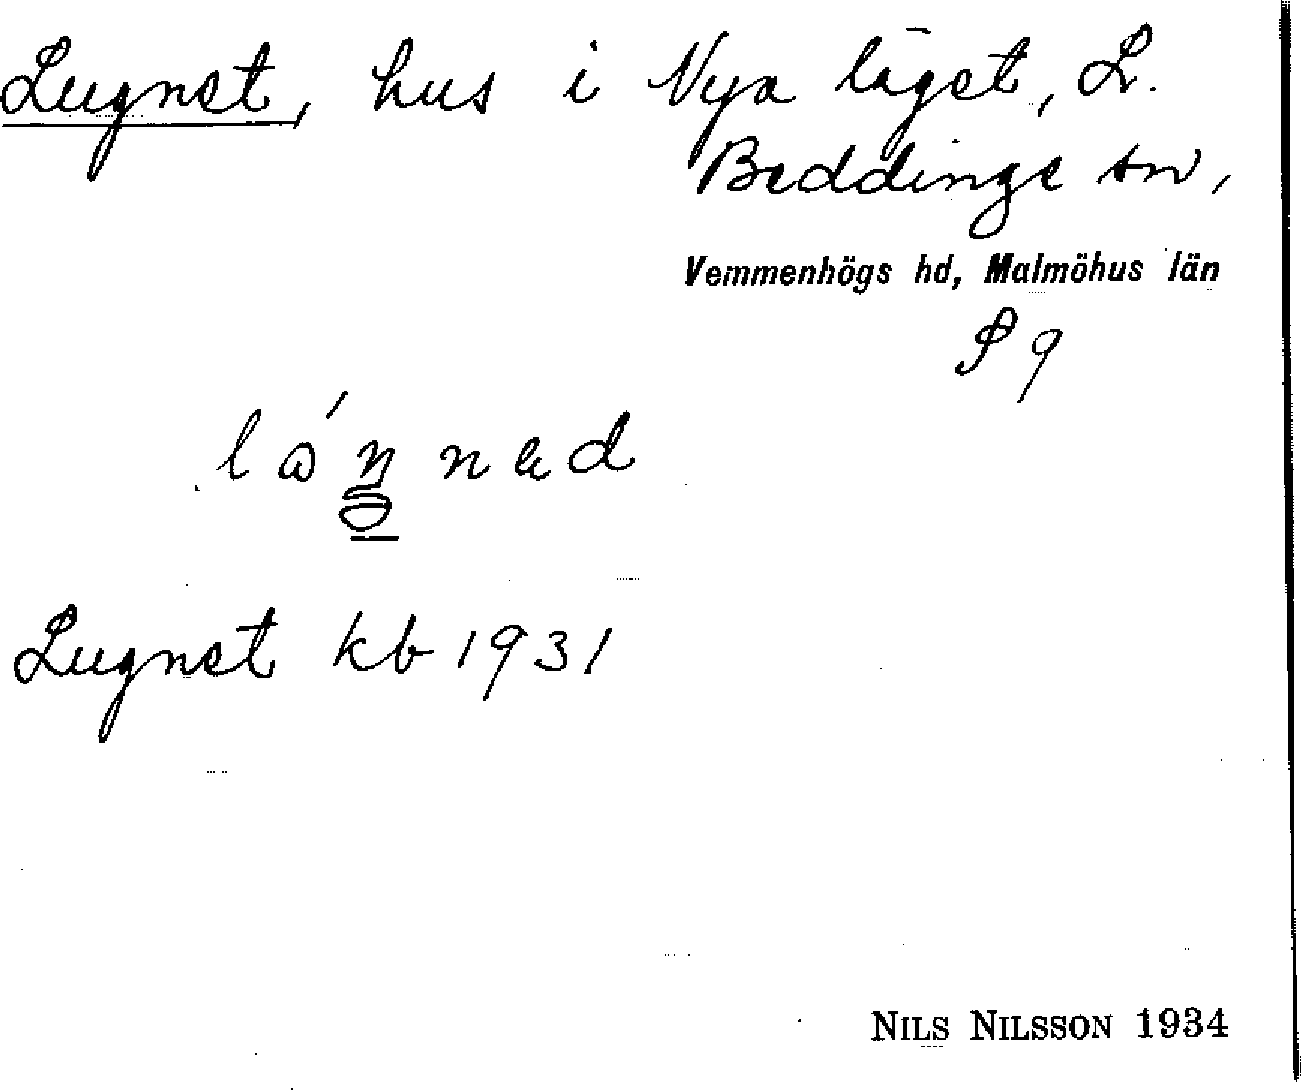 Lugnet, hus i Nya läget, L.
Beddinge sn,
Vemmenhögs hd, Malmöhus län
S 9
Lugnet kb 1931
NILS NILSSON 1934